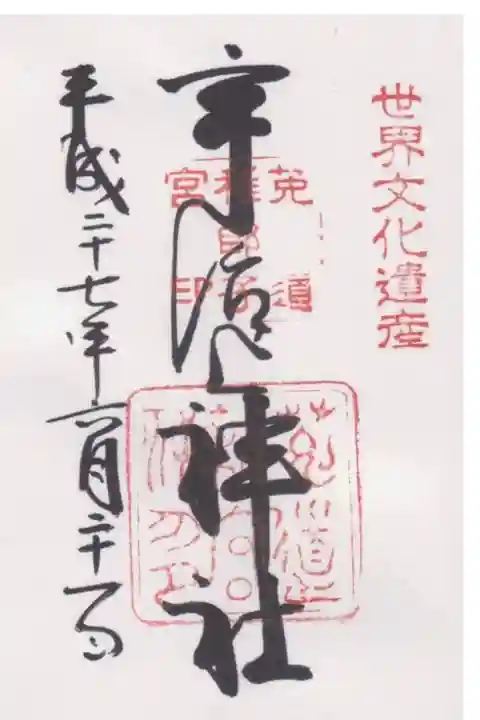 世界文化遺産
宇治上神社
菟道
稚郎子
宮印
平成二十七年六月二十一日